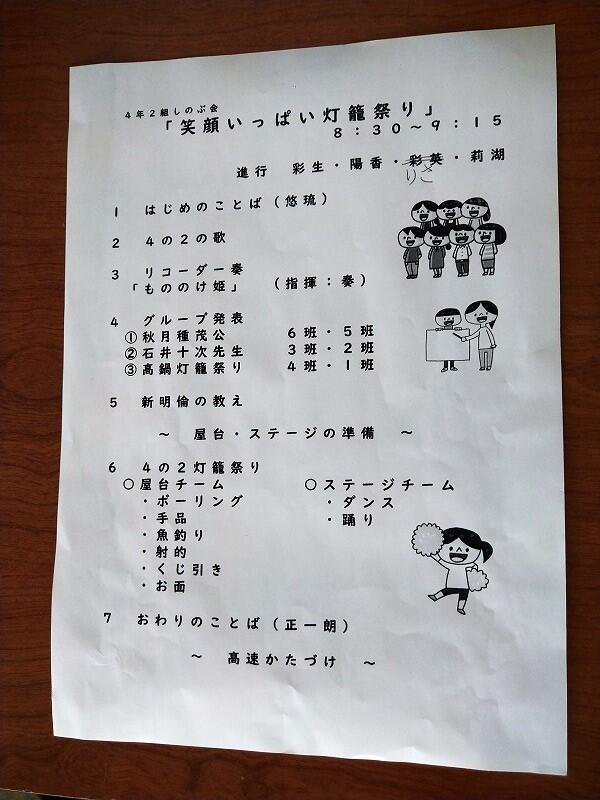 4年2組しのぶ会
「笑顔いっぱい灯籠祭り」
8:30~9:15
進行 彩生・陽香・彩英・莉湖
りさ
1 はじめのことば(悠琉)
2 4の2の歌
3 リコーダー奏
「もののけ姫」 (指揮:奏)
4 グループ発表
①秋月種茂公 6班・5班
②石井十次先生 3班・2班
③高鍋灯籠祭り 4班・1班
5 新明倫の教え
~ 屋台・ステージの準備 ~
6 4の2灯籠祭り
○屋台チーム ○ステージチーム
・ボーリング ・ダンス
・手品 ・踊り
・魚釣り
・射的
・くじ引き
・お面
7 おわりのことば(正一朗)
~ 高速かたづけ ~